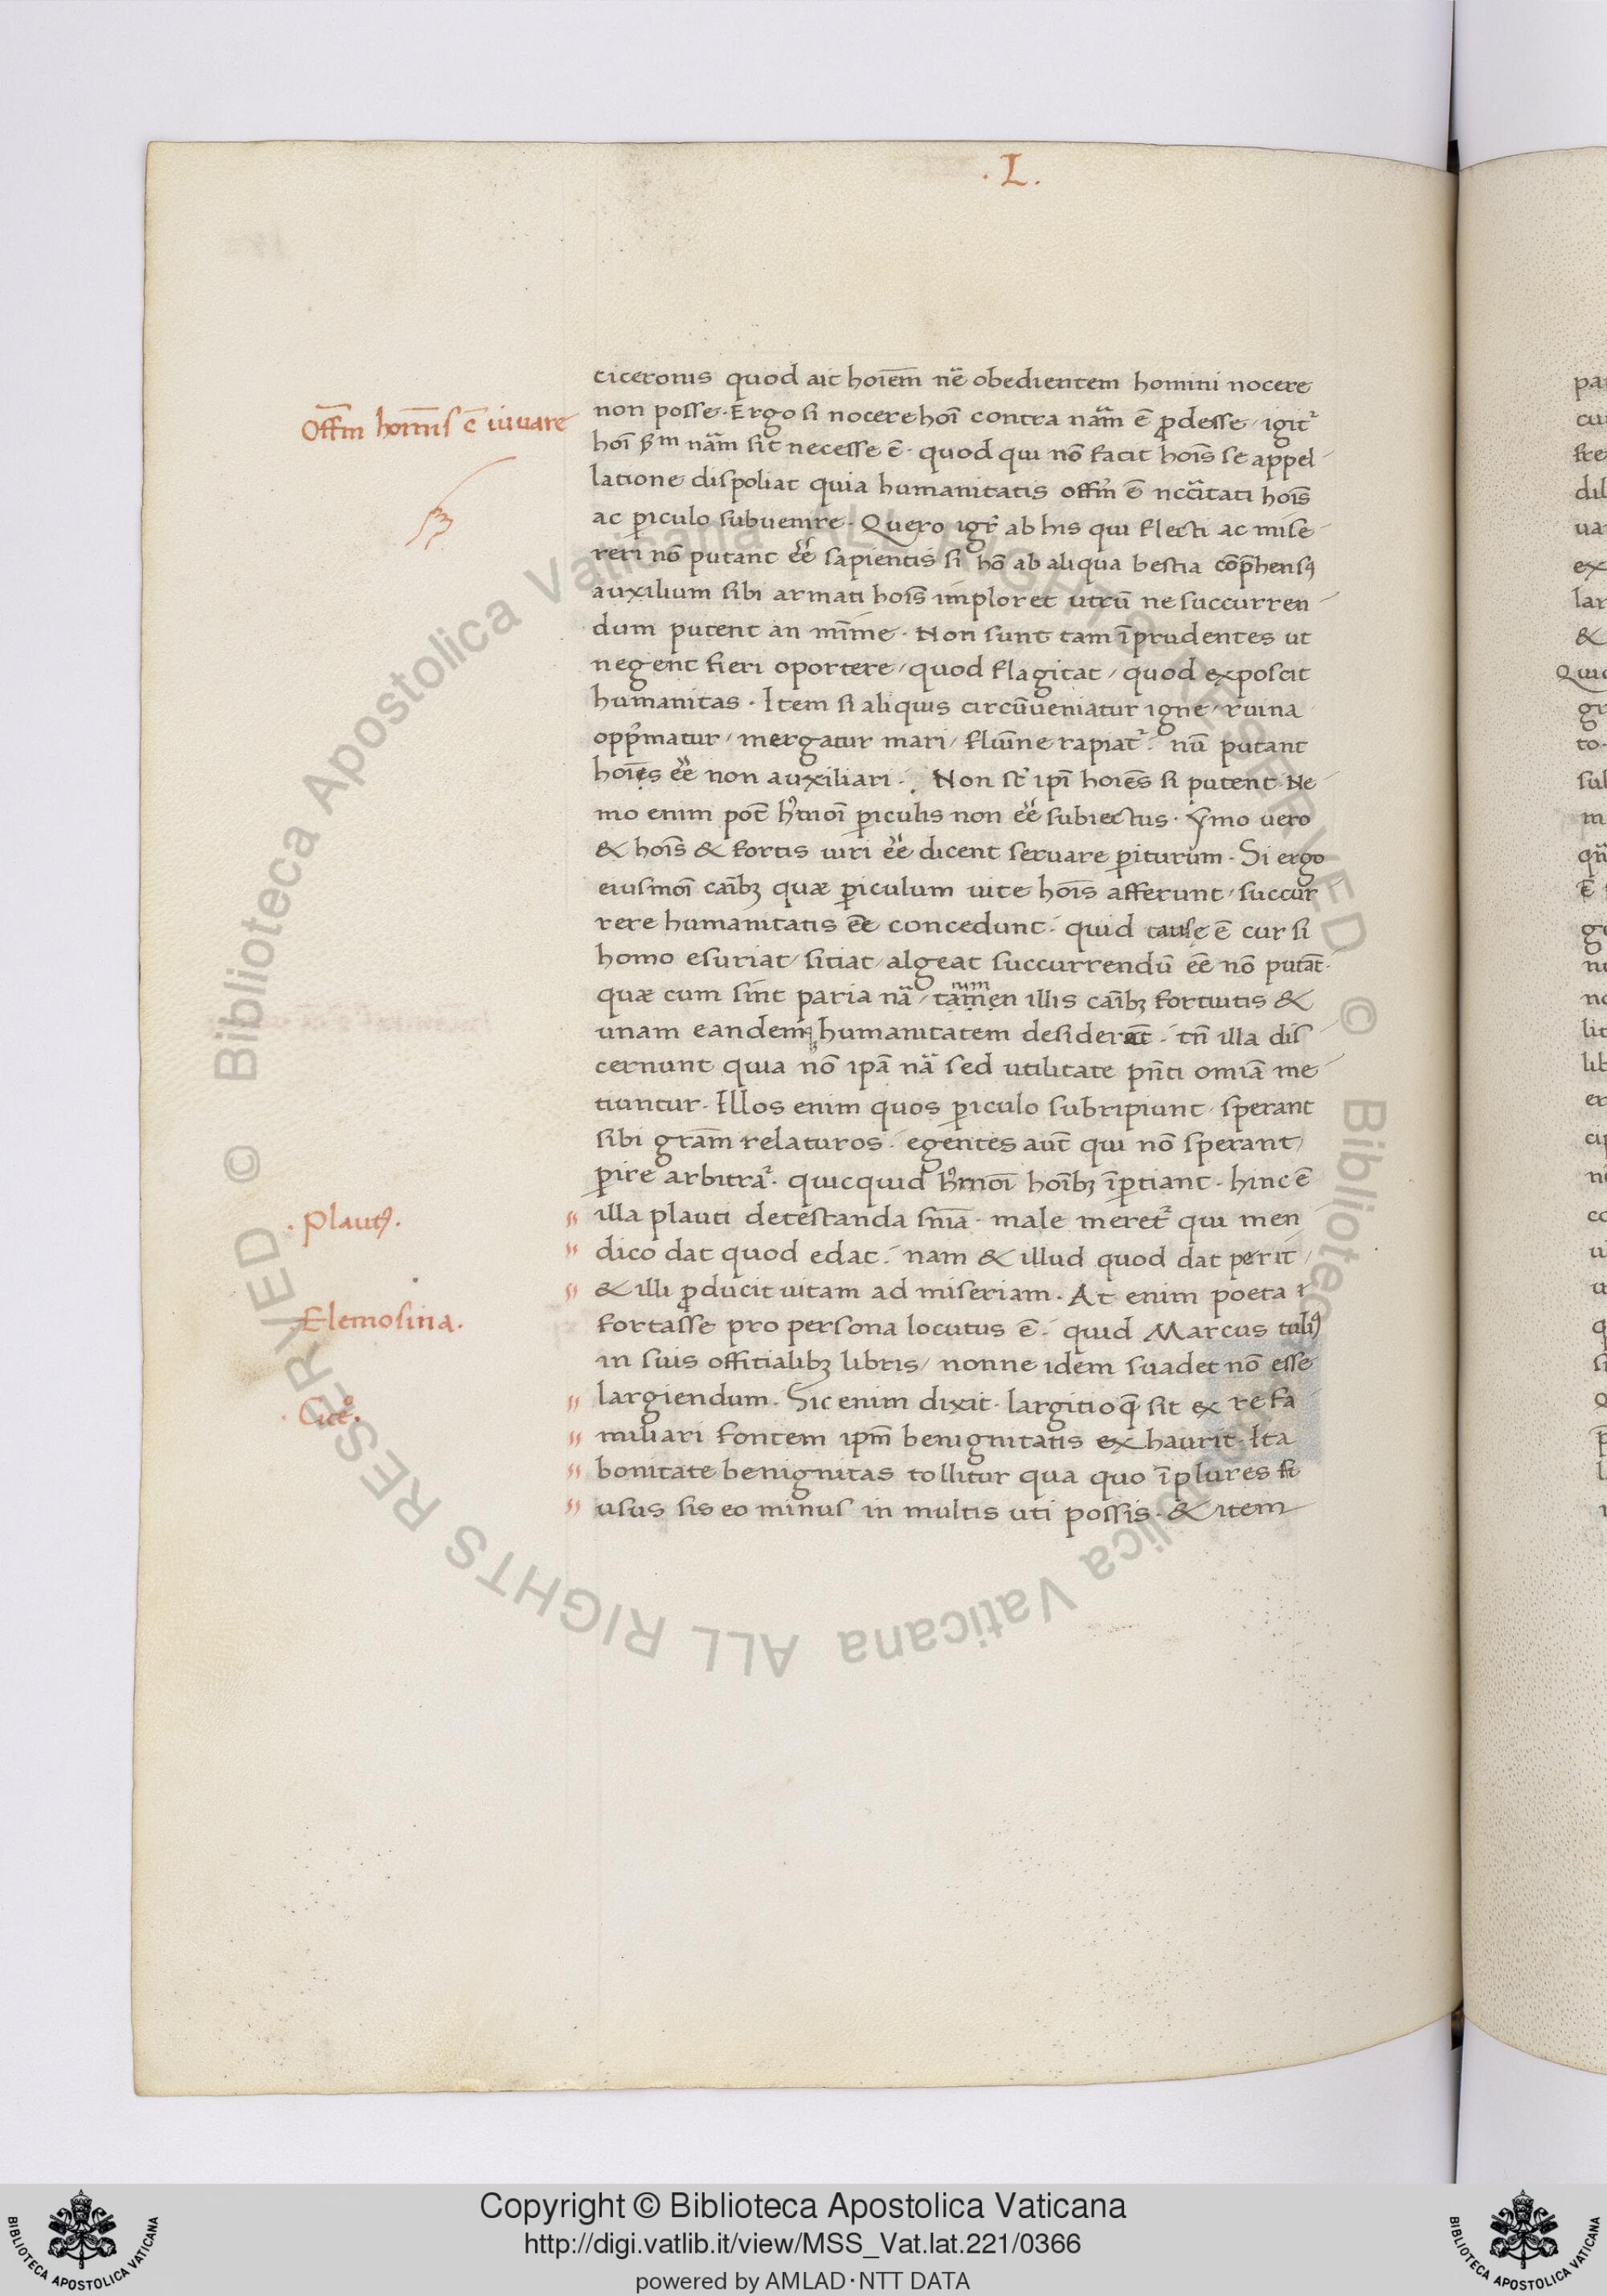 .L.
ciceronis quod ait hoīem nẽ obedientem homini nocere
non posse. Ergo si nocere hoī contra nãm ē ꝓdesse / igit᷑
hoī ẜm nãm sit necesse ē. quod qui nō facit hoīs se appel
latione dispoliat quia humanitatis offm̄ ē nccĩtati hoīs
ac ꝑiculo subuenire. Quero igr̄ ab his qui flecti ac mise
reri nō putant eē sapientis si hō ab aliqua bestia cōp̄hensꝰ
auxilium sibi armati hoīs imploret utrū ne succurren
dum putent an mīme. Non sunt tam īprudentes ut
negent fieri oportere / quod flagitat / quod exposcit
humanitas. Item si aliquis circūueniatur igne / ruina
opp̄matur / mergatur mari / fluīne rapiat᷑. nū putant
hoīes eē non auxiliari. Non st̄ ipī hoīes si putent. Ne
mo enim pōt hꝰmoī ꝑiculis non eē subiectus. ymo uero
& hoīs & fortis uiri eē dicent seruare ꝑiturum. Si ergo
eiusmoī caībꝫ quæ ꝑiculum uite hoīs afferunt / succur
rere humanitatis eē concedunt. quid cause ē cur si
homo esuriat / sitiat / algeat succurrendū eē nō putāt.
quæ cum sint paria nã / tamen illis caībꝫ fortuitis &
num
unam eandemqꝫ humanitatem desiderāt. tn̄ illa dis
cernunt quia nō ipā nã sed utilitate pn̄ti omīa me
tiuntur. Illos enim quos ꝑiculo subripiunt sperant
sibi grām relaturos. egentes aūt qui nō sperant /
ꝑire arbitrā᷑. quicquid hꝰmoī hoībꝫ īꝑtiant. hinc ē
illa plauti detestanda sn̄ia. male meret᷑ qui men
dico dat quod edat. nam & illud quod dat perit /
& illi ꝓducit uitam ad miseriam. At enim poeta
fortasse pro persona locutus ē. quid Marcus tuliꝰ
in suis offitialibꝫ libris / nonne idem suadet nō esse
largiendum. Sic enim dixit. largitio q̄ sit ex re fa
miliari fontem ipm̄ benignitatis exhaurit. Ita
bonitate benignitas tollitur qua quo ī plures
usus sis eo minus in multis uti possis. & item
Off̄m homīs ē iuuare
.Plautꝰ.
Elemosina.
.Cice͛.
Copyright © Biblioteca Apostolica Vaticana
http://digi.vatlib.it/view/MSS_Vat.lat.221/0366
powered by AMLAD·NTT DATA
BIBLIOTECA APOSTOLICA VATICANA
BIBLIOTECA APOSTOLICA VATICANA
© Biblioteca Apostolica Vaticana ALL RIGHTS RESERVED © Biblioteca Apostolica Vaticana ALL RIGHTS RESERVED